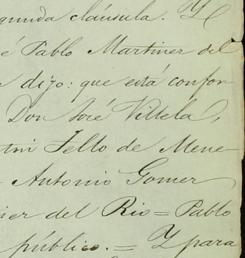 gunda cláusula. Y
é Pablo Martinez del
e dijo: que está confor
Don José Villela,
tin Tello de Mene
Antonio Gomez
ier del Rio = Pablo
público. = Y para